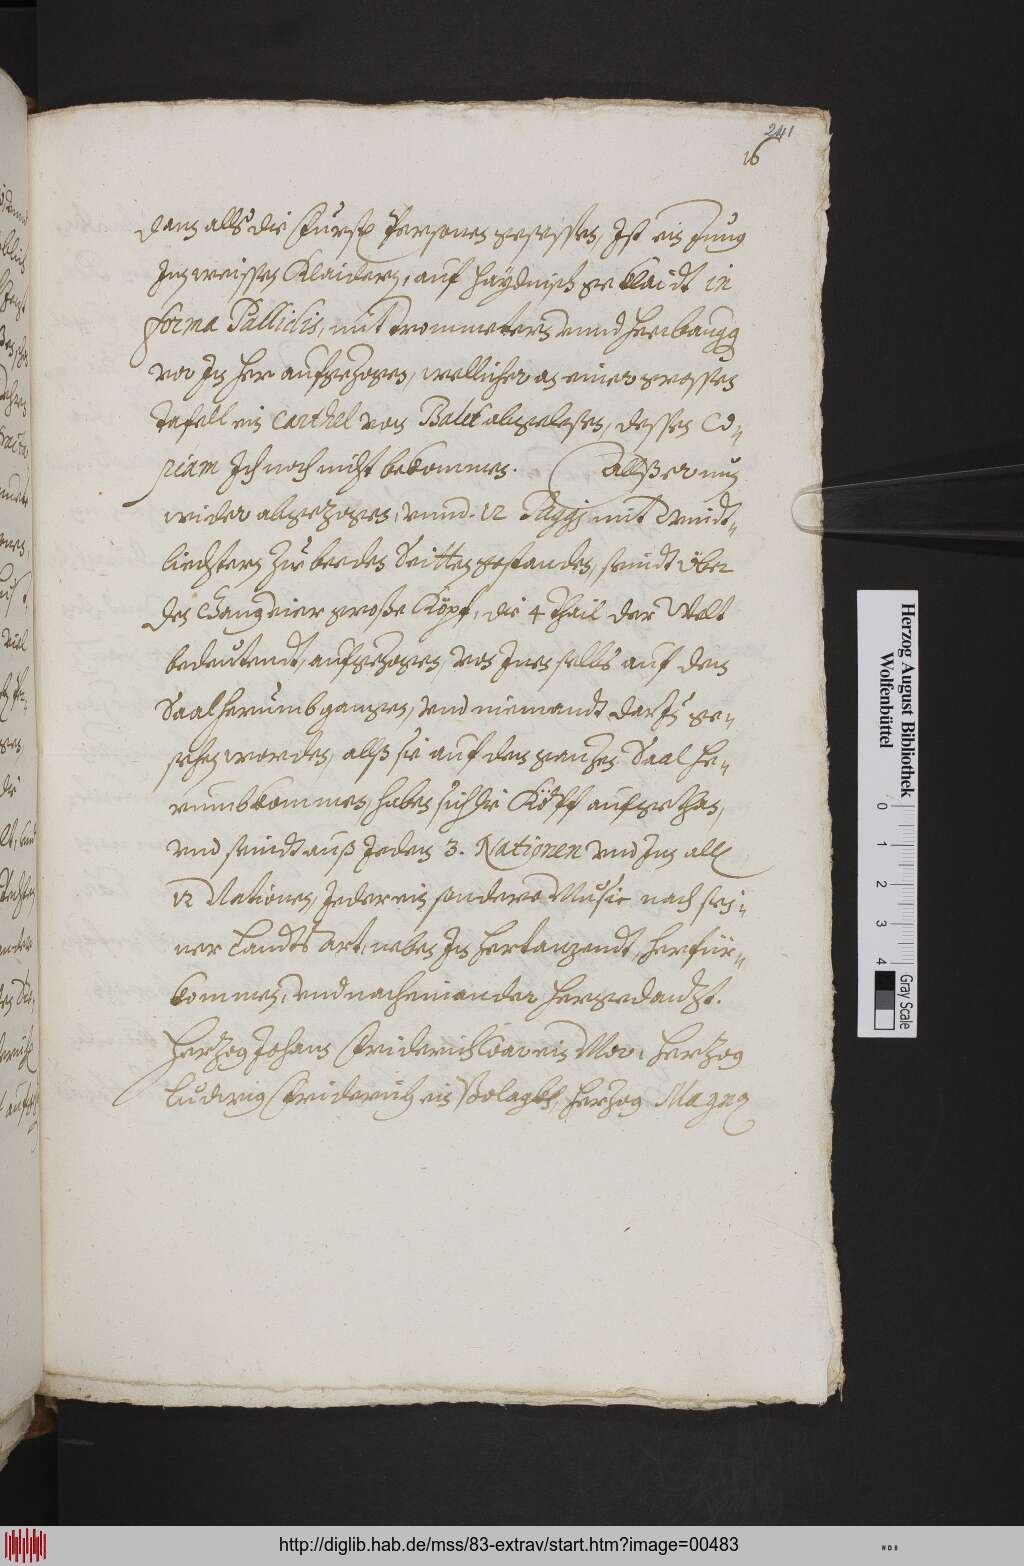 241
16
dann allß die Fürstl Personen gesessen, Ist ein Jung
In weissen Klaidern, auf haydnisch geklaidt in
forma Palliclis, mit trommetern vnnd heerbaugg
vor Im her aufgezogen, wellicher an einer grossen
Tafell ein Carthel von Balet abgelesen, dessen Co-
piam Ich noch nicht bekommen. Allß er nun
wider abgezogen, vnnd 12 Paggj mit Windt-
liechtern zue beeden Seitten gestanden, seindt über
den Gang vier große Köpf, die 4 thail der Welt
bedeutendt, aufgezogen, von Inen selbs auf dem
Saal herumb gangen, vnd niemandt darIn ge-
sehen worden, allß sie auf den gantzen Saal he-
rumb kommen, haben sich die Köpff aufgethan,
vnd seindt auß Jedem 3. Nationen vnd Inn all
12 Nationen, Jeder ein sondere Music nach sei-
ner Landts art, neben Im her tanzendt, herfür-
kommen, vnd nacheinander hergedantzt.
Hertzog Johann Friderich war ein Mor, Hertzog
Ludwig Friderich ein Polagkh, Hertzog Magnq
Herzog August Bibliothek
Wolfenbüttel
0 1 2 3 4
Gray Scale
http://diglib.hab.de/mss/83-extrav/start.htm?image=00483